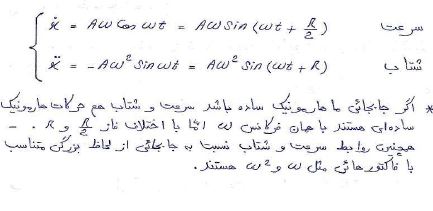 ẋ = Aω Cos ωt = Aω Sin (ωt + π/2) سرعت
ẍ = -Aω² Sin ωt = Aω² Sin (ωt + π) شتاب
* اگر جابجائی ما هارمونیک ساده باشد سرعت و شتاب هم حرکات هارمونیک
ساده‌ای هستند با همان فرکانس ω اما با اختلاف فاز π/2 و π . -
همچنین روابط سرعت و شتاب نسبت به جابجائی از لحاظ بزرگی متناسب
با فاکتورهائی مثل ω و ω² هستند.